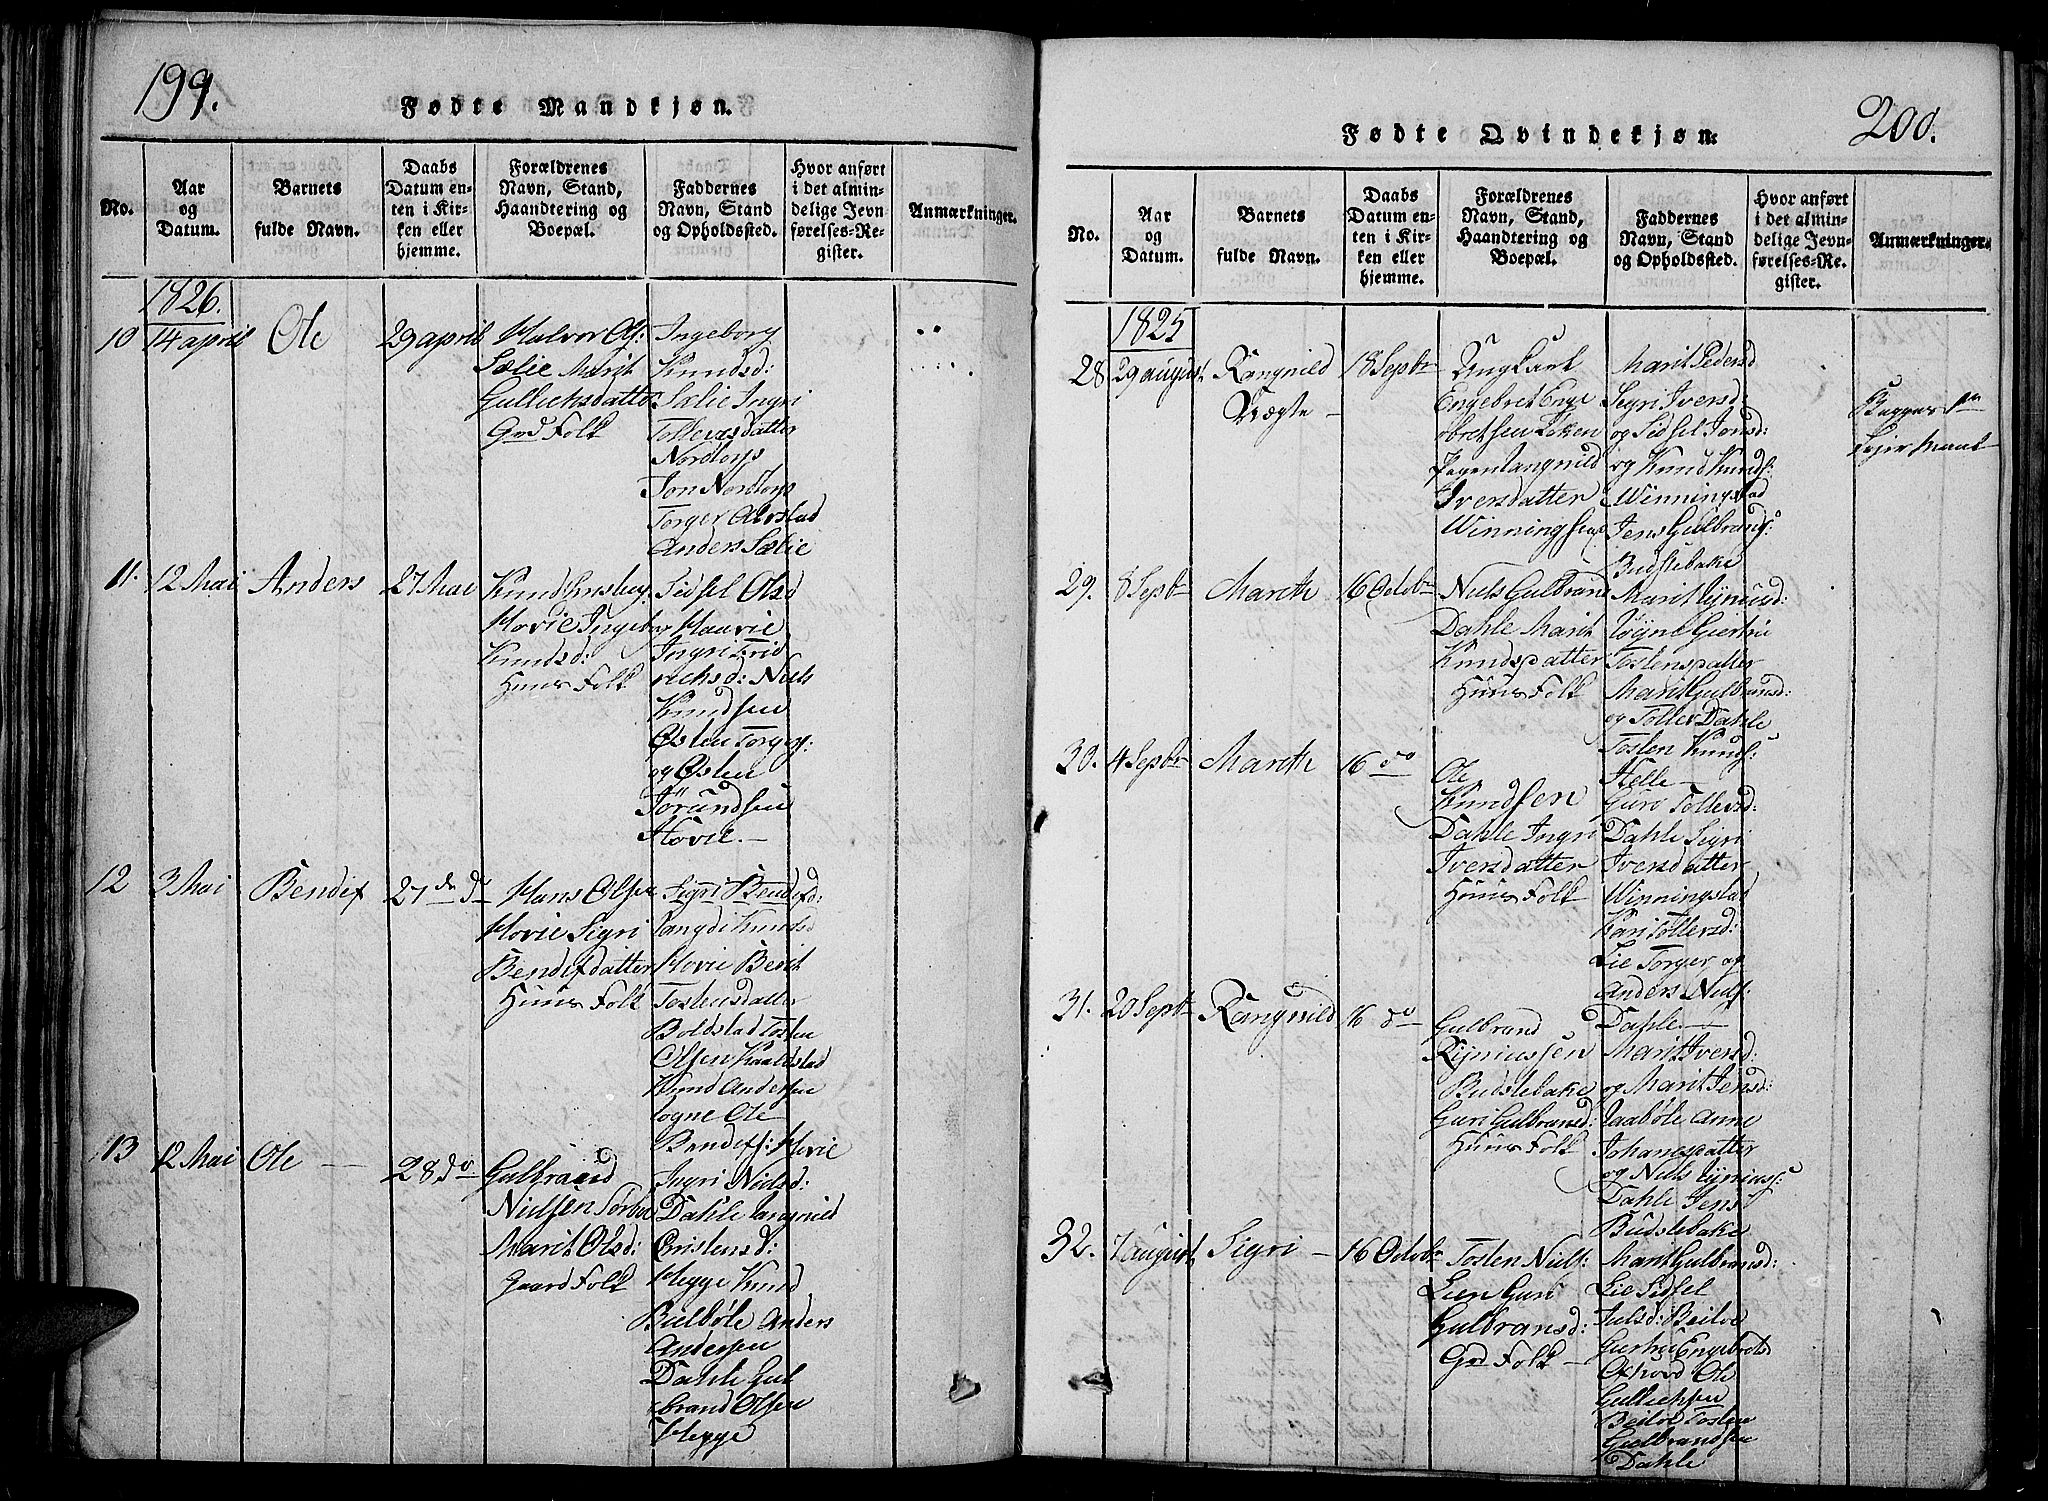 199.
Fødte Mandkjøn.
No.
Aar
og
Datum.
Barnets
fulde Navn.
Daabs
Datum en-
ten i Kir-
ken eller
hjemme.
Forældrenes
Navn, Stand,
Haandtering og
Boepæl.
Faddernes
Navn, Stand
og Opholdssted.
Hvor anført
i det almin-
delige Jevn-
førelses-Re-
gister.
Anmærkninger.
1826.
10 14 april Ole 29 april
Halvor Ols:
Sælie Marit
Gullichsdatter
Grd Folk
Ingeborg
Knudsd:
Sælie Ingri
Tollevsdatter
Nordtorp
Jon Nordtorp
Torger Alvstad
Anders Sælie
11. 12 Mai Anders 27 Mai
Knud
Hovie Ingeb
Knudsd:
Huus Folk
Sidsel Olsd
Haavie
Ingri Frid
richsd: Niels
Knudsen
Østen Torgers:
og Østen
Jörundsen
Hovie.
12 3 Mai Bendix 27 de do
Hans Olsen
Hovie Sigri
Bendixdatter
Huus Folk
Sigri Bendixd:
Rangdi Knudsd
Hovie Berit
Tostensdatter
Boldstad Tosten
Olsen
Knud Andersen
Logne Ole
Bendixs: Hovie
13 12 Mai Ole 28 do
Gulbrand
Nielsen Sørbøl
Marit Olsd:
Gaard Folk
Ingri Nielsd:
Dahle Rangnild
Cristensd:
Hegge Knud
Bielbøle Anders
Andersen
Dahle Gul
brand Olsen
Hegge
200.
Fødte Qvindekjøn.
No.
Aar
og
Datum.
Barnets
fulde Navn.
Daabs
Datum en-
ten i Kir-
ken eller
hjemme.
Forældrenes
Navn, Stand,
Haandtering og
Boepæl.
Faddernes
Navn, Stand
og Opholdssted.
Hvor anført
i det almin-
delige Jevn-
førelses-Re-
gister.
Anmærkninger.
1825
28 29 august Rangnild 18 Septbr
Uægte
Ungkarl
Engebret Enge
bretsen Loken
Pigen Rangnild
Iversdatter
Winningstad
Marit Pedersd
Segri Iversd:
og Sidsel Jonsd:
og Knud Knuds:
Winningstad
Jens Gulbrands:
Budslebake
Begges 1ste
Leiermaal
29. 8 Septbr Mareth 16 Octobr
Niels Gulbrands
Dahle Marit
Knudsdatter
Huus Folk
Marit
Logne Giertru
Tostensdatter
Marit Gulbransd:
og Tollev Dahle
Tosten Knuds:
Helle
30. 4 Septbr Mareth 16 do
Ole
Knudsen
Dahle Ingri
Iversdatter
Huus Folk
Guro Tollevsd:
Dahle Sigri
Iversdatter
Winningstad
Kari Tollevsd:
Lie Torger og
Anders Niels:
Dahle
31. 20 Septbr Rangnild 16 do
Gulbrand
Budslebake
Guri Gulbransd:
Huus Folk
Marit Iversd:
og Marit Jensd:
Raabøle Anne
Johanesdatter
og Niels
Dahle Jens
Budslebake
32. 7 august Sigri 16 Octobr
Tosten Niels:
Lien Guri
Gulbransd:
Grd Folk
Marit Gulbransd:
Lie Sidsel
Julsd: Beito
Giertru Engebretsd
Ole
Gullichsen
Beito Tosten
Gulbrandsen
Dahle